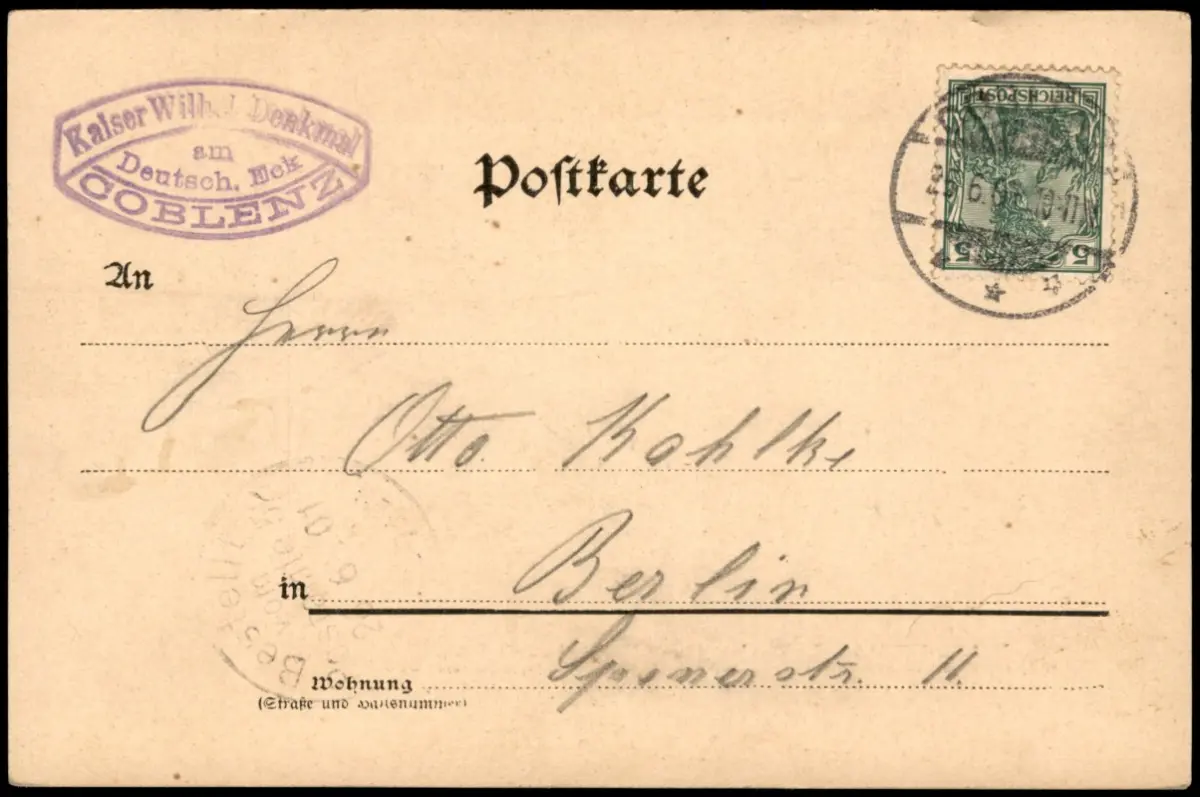 Kaiser Wilh. Denkmal
am
Deutsch. Eck
COBLENZ
Postkarte
REICHSPOST
5 5
An
Herrn
Otto Kohlke
in Berlin
Bestellt
vom
Wohnung
(Straße und Hausnummer)